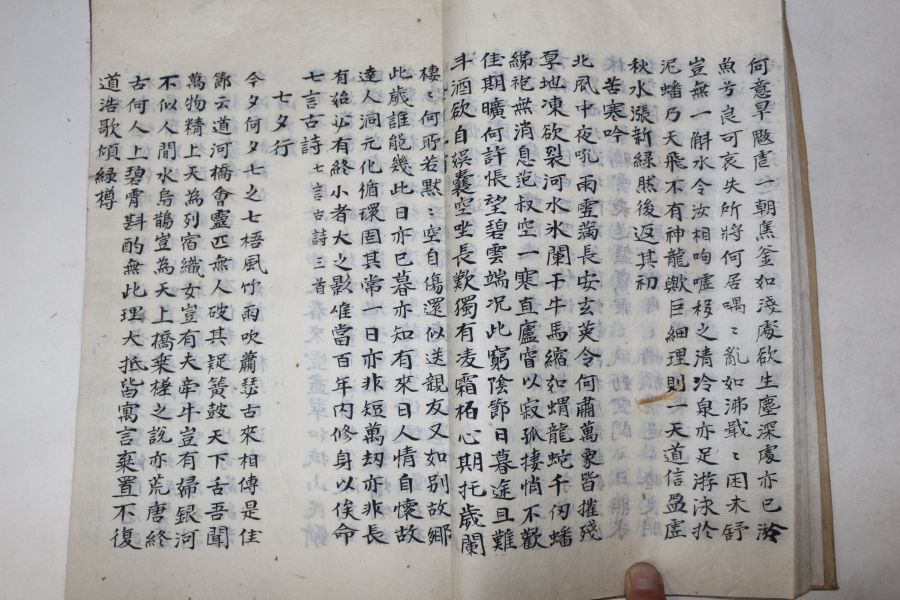 何意旱魃虐一朝焦釜如淺處欲生塵深處亦已涔
魚兮良可哀失所將何居喁〻亂如沸戢〻困未舒
豈無一斛水令汝相呴噓移之清泠泉亦足游泳於
泥蟠乃天飛不有神龍歟巨細理則一天道信盈虛
秋水漲新綠然後返其初
苦寒吟
北風中夜吼雨雪滿長安玄英令何肅萬象皆摧殘
厚地凍欲裂河水氷闌干牛馬縮如蝟龍蛇千仞蟠
綈袍無消息范叔空一寒直廬膏以寂孤捿悄不歡
佳期曠何許悵望碧雲端况此窮陰節日暮途且難
斗酒欲自娛囊空坐長歎獨有凌霜栢心期托歲闌
棲〻何所若黙〻空自傷還似送親友又如別故鄉
此歲誰能幾此日亦已暮亦知有來日人情自懷故
達人洞元化循環固其常一日亦非短萬刼亦非長
有始必有終小者大之影雖當百年內修身以俟命
七言古詩 七言古詩三首
七夕行
今夕何夕七之七梧風竹雨吹蕭瑟古來相傳是佳
節云道河橋會靈匹無人破其疑簧皷天下舌吾聞
萬物精上天為列宿織女豈有夫牽牛豈有婦銀河
不似人間水烏鵲豈為天上橋乗槎之說亦荒唐終
古何人上碧霄斟酌無此理大抵皆寓言棄置不復
道浩歌傾綠樽